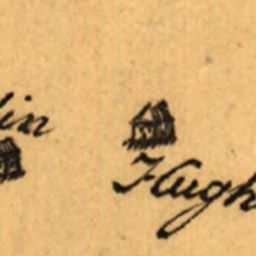 lin
Hugh